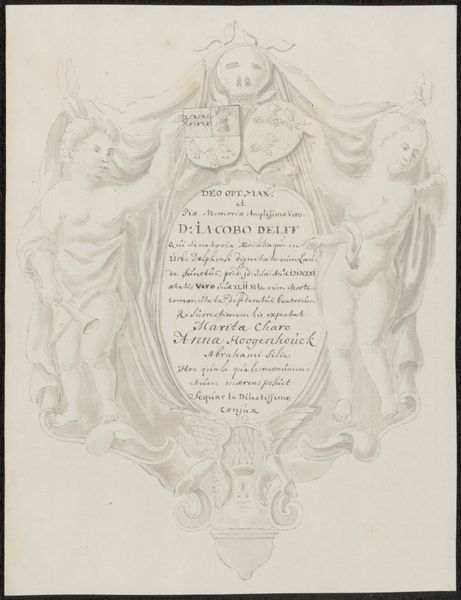 DEO OPT. MAX.
et
Piæ Memoriæ Amplissimo Viro.
D: IACOBO DELFF
Qui Senatoria, Ædilitiaque in
Urbe Delphensi dignitate cum laude
de functus, prid. Jd: Jun: An°
ætatis Vero Suæ XLII Vita cum Morte
commutata desideratus beatorum
Resurrectionem hic expectat
Marito Charo
Anna Hoogenhoúck
Abrahami filia
Hoc qualequale monimen-
tum mærens posuit
Sequar te Dilectissime
Conjux